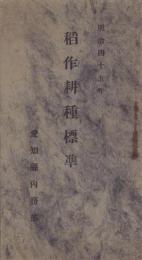 明治四十五年
稲作耕種標準
愛知縣内務部